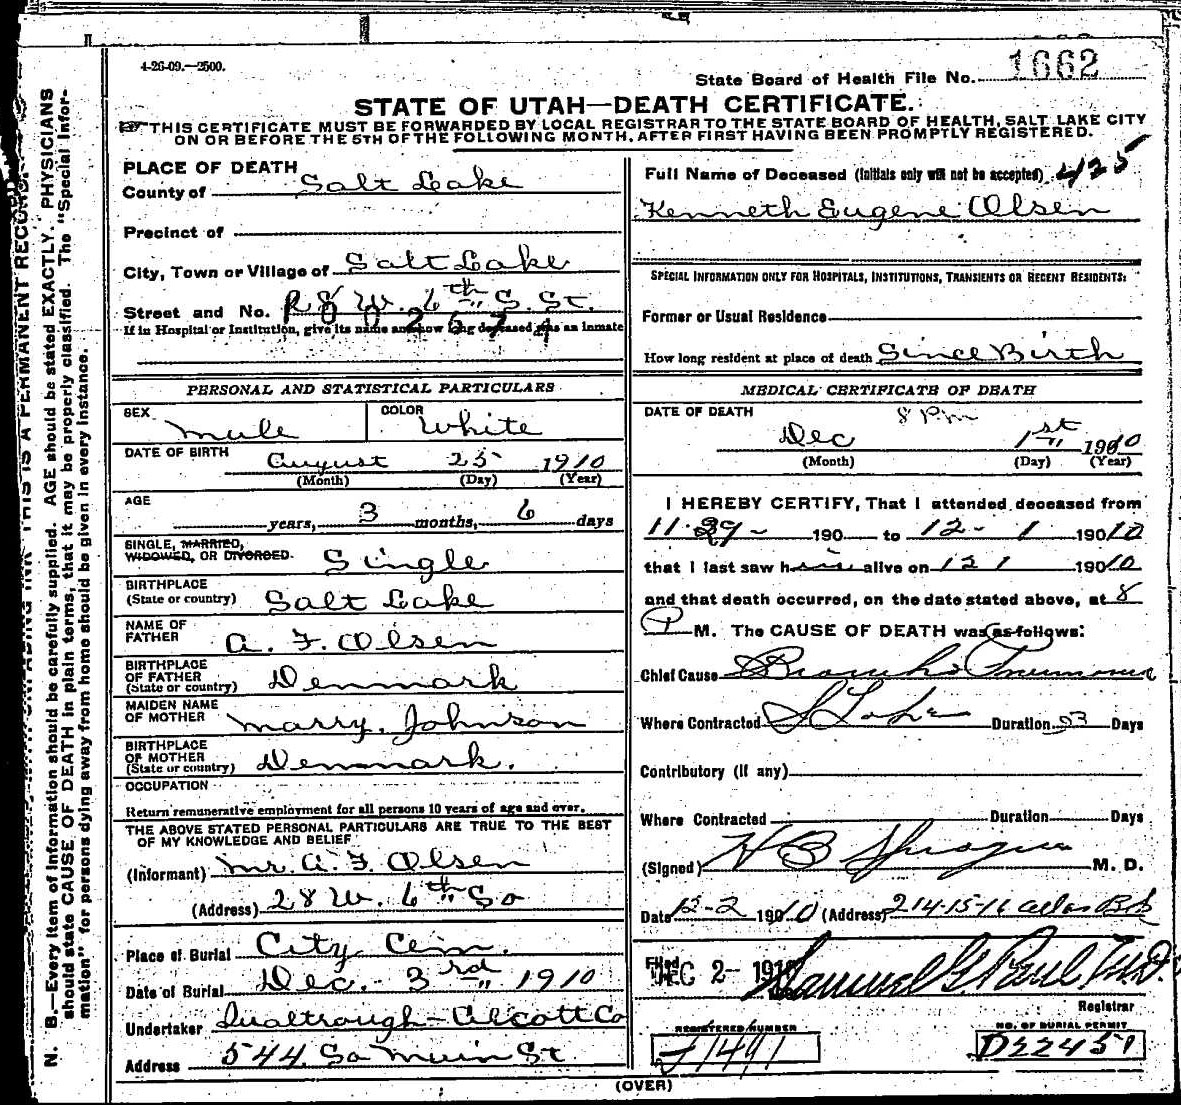 4-26-09.—2500.
State Board of Health File No. 1662
STATE OF UTAH—DEATH CERTIFICATE.
THIS CERTIFICATE MUST BE FORWARDED BY LOCAL REGISTRAR TO THE STATE BOARD OF HEALTH, SALT LAKE CITY
ON OR BEFORE THE 5TH OF THE FOLLOWING MONTH, AFTER FIRST HAVING BEEN PROMPTLY REGISTERED.
PLACE OF DEATH
County of Salt Lake
Precinct of
City, Town or Village of Salt Lake
Street and No. R 28 W. 6th S. St.
If in Hospital or Institution, give its name and how long deceased was an inmate
PERSONAL AND STATISTICAL PARTICULARS
SEX Male COLOR White
DATE OF BIRTH August 25 1910
(Month) (Day) (Year)
AGE
years, 3 months, 6 days
SINGLE, MARRIED,
WIDOWED, OR DIVORCED. Single
BIRTHPLACE
(State or country) Salt Lake
NAME OF
FATHER A. F. Olsen
BIRTHPLACE
OF FATHER
(State or country) Denmark
MAIDEN NAME
OF MOTHER Marry. Johnson
BIRTHPLACE
OF MOTHER
(State or country) Denmark.
OCCUPATION
Return remunerative employment for all persons 10 years of age and over.
THE ABOVE STATED PERSONAL PARTICULARS ARE TRUE TO THE BEST
OF MY KNOWLEDGE AND BELIEF
(Informant) Mr. A. F. Olsen
(Address) 28 W. 6th So
Place of Burial City Cem.
Date of Burial Dec. 3rd 1910
Undertaker Qualtrough-Alcott Co
Address 544 So Main St
Full Name of Deceased (Initials only will not be accepted) 425
Kenneth Eugene Olsen
SPECIAL INFORMATION ONLY FOR HOSPITALS, INSTITUTIONS, TRANSIENTS OR RECENT RESIDENTS:
Former or Usual Residence
How long resident at place of death Since Birth
MEDICAL CERTIFICATE OF DEATH
DATE OF DEATH 8 Pm
Dec 1st 1910
(Month) (Day) (Year)
I HEREBY CERTIFY, That I attended deceased from
11-29- 190 to 12-1 1910
that I last saw him alive on 12 1 1910
and that death occurred, on the date stated above, at 8
P M. The CAUSE OF DEATH was as follows:
Chief Cause Broncho Pneumonia
Where Contracted S Lake Duration 3 Days
Contributory (if any)
Where Contracted Duration Days
(Signed) H B Sprague M. D.
Date 12-2 1910 (Address) 214-15-16 Atlas Blk
Filed DEC 2- 1910 Samuel G. Paul M.D.
Registrar
REGISTERED NUMBER
NO. OF BURIAL PERMIT
J1491
D22451
(OVER)
N. B.—Every item of information should be carefully supplied. AGE should be stated EXACTLY. PHYSICIANS
should state CAUSE OF DEATH in plain terms, that it may be properly classified. The "Special Infor-
mation" for persons dying away from home should be given in every instance.
THIS IS A PERMANENT RECORD.